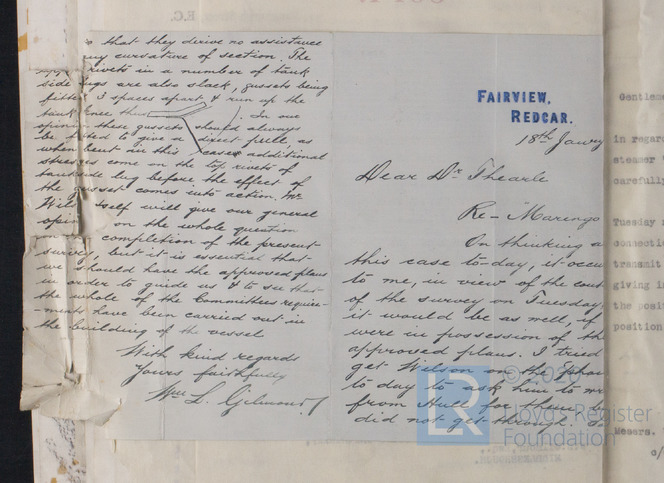 that they derive no assistance
curvature of section. The
rivets in a number of tank
side lugs are also slack, gussets being
fitted 3 spaces apart & run up the
tank knee thus . In our
opinion these gussets should always
be fitted to give a direct pull, as
when bent in this case additional
stresses come on the top rivets of
tankside lug before the effect of
the gusset comes into action. Mr
self will give our general
on the whole question
completion of the present
survey, but it is essential that
we should have the approved plans
in order to guide us & to see that
the whole of the Committees require-
-ments have been carried out in
the building of the vessel
With kind regards
Yours faithfully
Wm L.
FAIRVIEW,
REDCAR.
18th Janry
Dear Dr Thearle
Re- Maringo
On thinking
this case to-day, it occu
to me, in view of the cont
of the survey on Tuesday,
it would be as well, if
were in possession of th
approved plans. I tried
get Wilson on the 'phone
to day to ask him to wr
from Hull for them,
did not get through.
Gentleme
in regar
steamer
carefully
Tuesday
connectio
transmit
giving i
the posit
position
Messrs.
c/
© 2020
LR
Lloyd's Register
Foundation